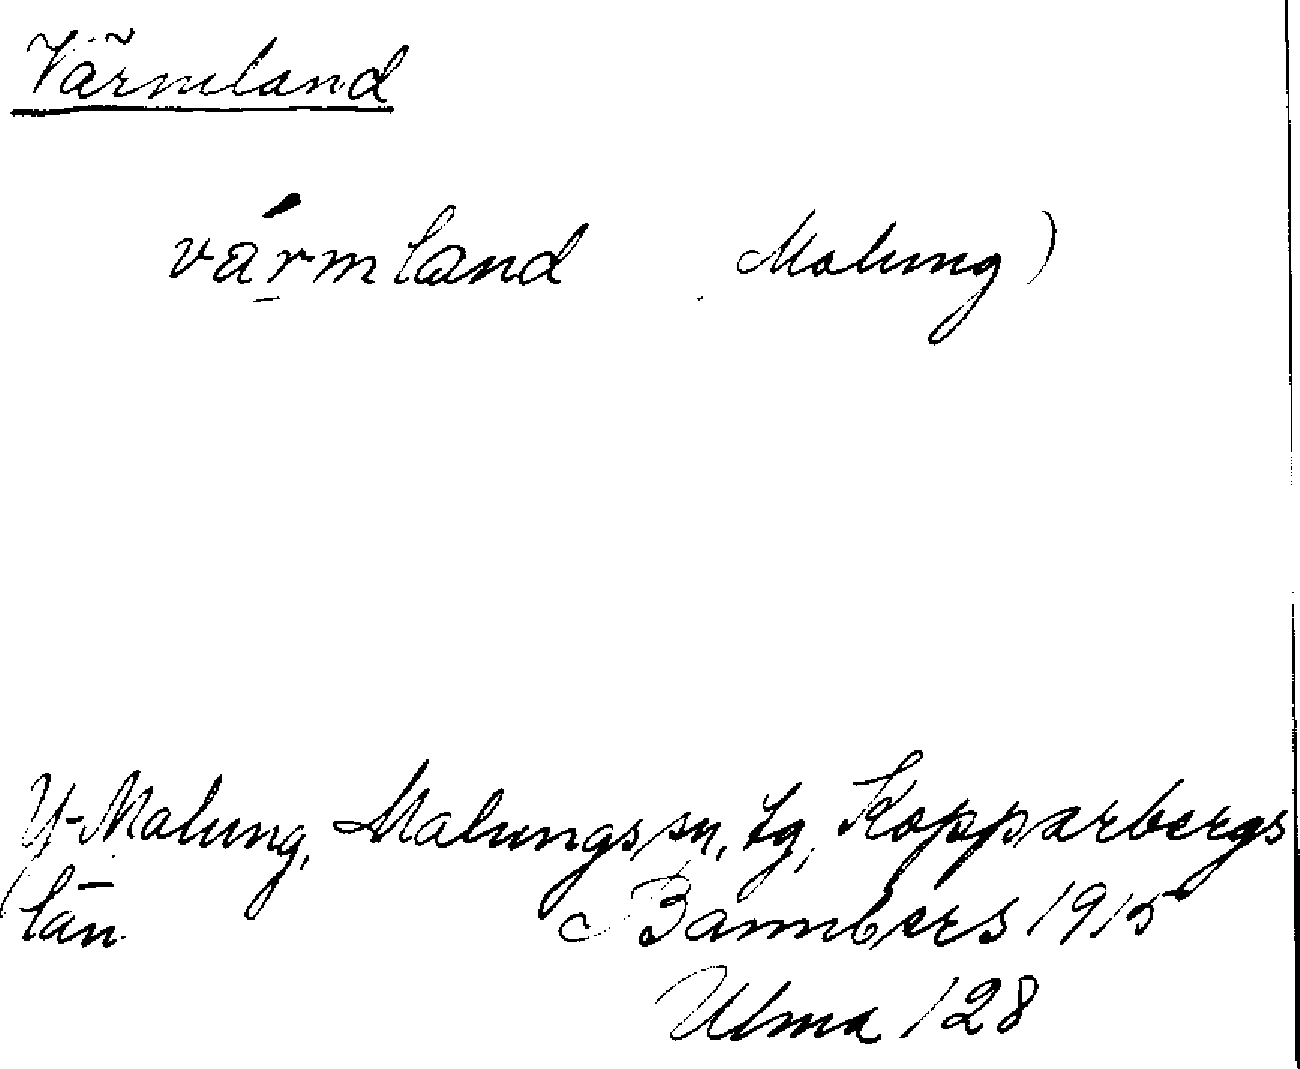 Värmland
värmland Malung)
Y-Malung, Malungs sn, tg, Kopparbergs
län Bannbers 1915
Ulma 128